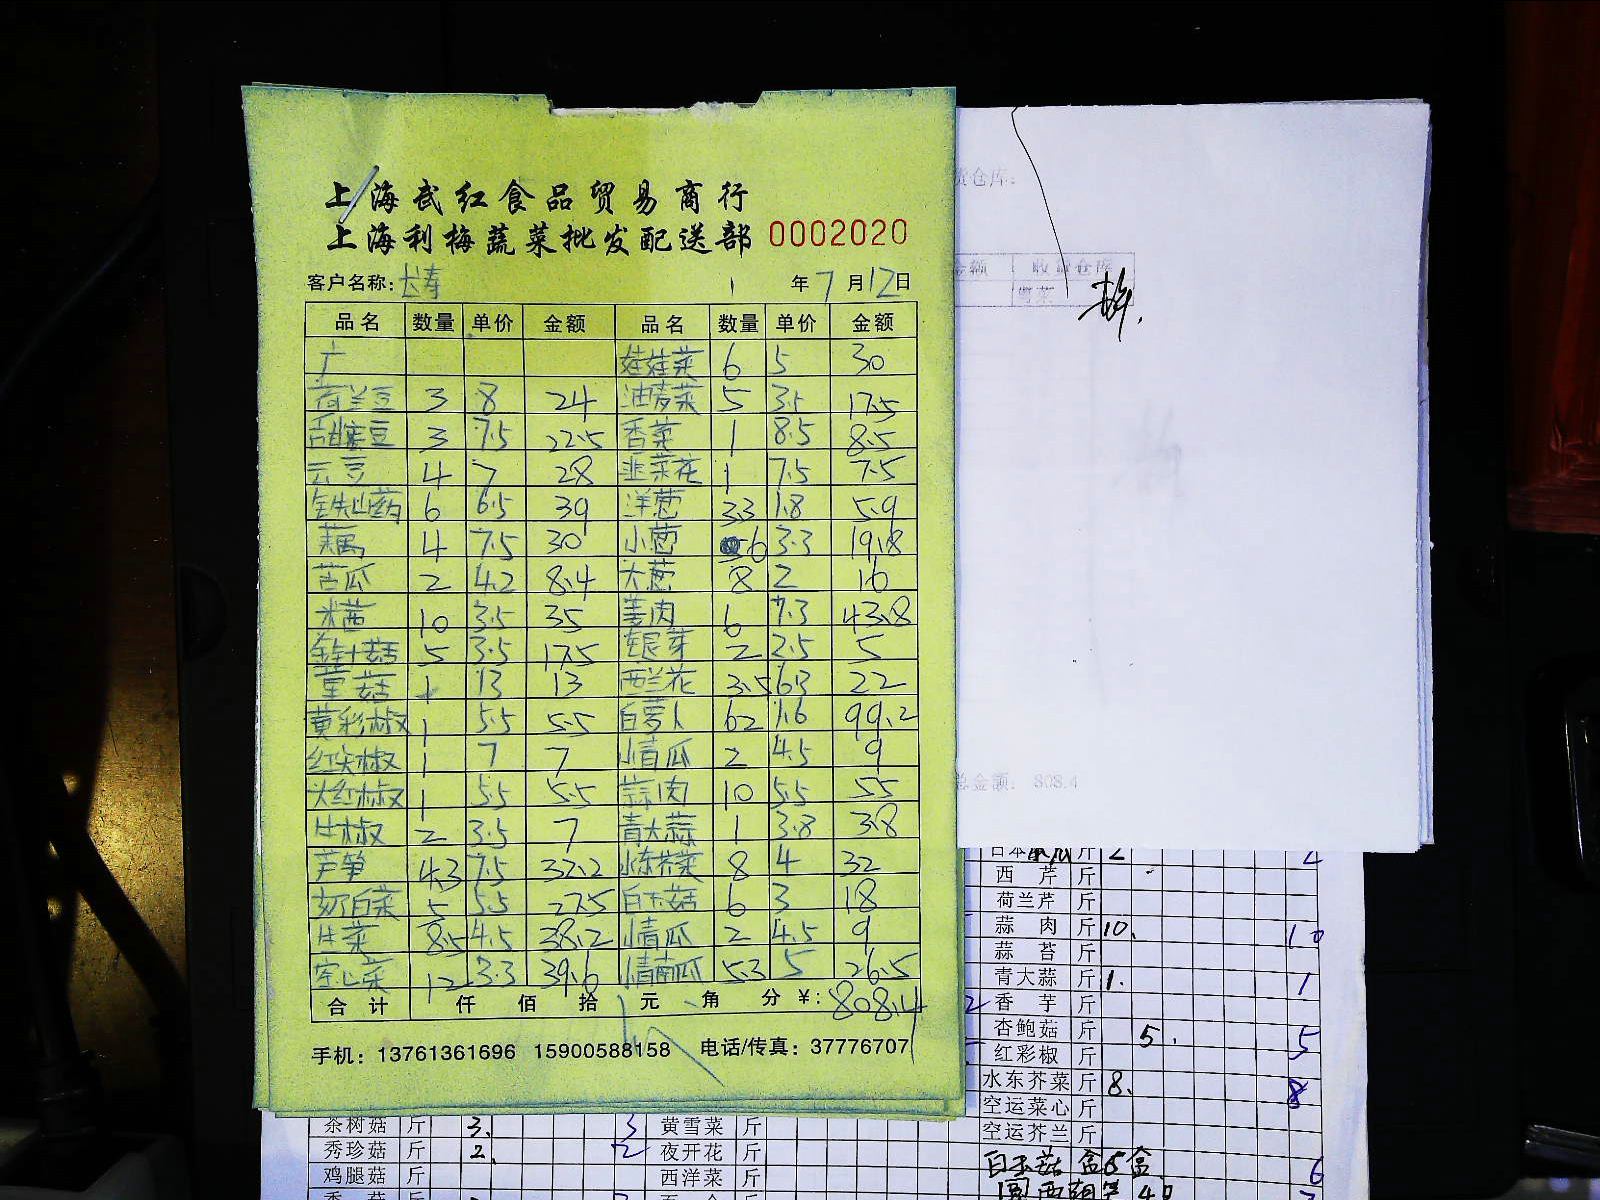 上海武红食品贸易商行
上海利梅蔬菜批发配送部 0002020
客户名称: 长寿 年 7 月 12 日
品名 数量 单价 金额 品名 数量 单价 金额
广 娃娃菜 6 5 30
荷兰豆 3 8 24 油麦菜 5 3.5 17.5
甜蜜豆 3 7.5 22.5 香菜 1 8.5 8.5
云豆 4 7 28 韭菜花 1 7.5 7.5
铁山药 6 6.5 39 洋葱 3.3 1.8 5.9
藕 4 7.5 30 小葱 6 3.3 19.8
苦瓜 2 4.2 8.4 大葱 8 2 16
米茜 10 3.5 35 姜肉 6 7.3 43.8
金针菇 5 3.5 17.5 银芽 2 2.5 5
草菇 1 13 13 西兰花 3.5 6.3 22
黄彩椒 1 5.5 5.5 白萝卜 62 1.6 99.2
红尖椒 1 7 7 小青瓜 2 4.5 9
大红椒 1 5.5 5.5 蒜肉 10 5.5 55
牛椒 2 3.5 7 青大蒜 1 3.8 3.8
芦笋 4.3 7.5 32.2 水东芥菜 8 4 32
奶白菜 5 5.5 27.5 白玉菇 6 3 18
生菜 8.5 4.5 38.2 小青瓜 2 4.5 9
空心菜 12 3.3 39.6 小青南瓜 5.3 5 26.5
合计 仟 佰 拾 元 角 分 ¥: 808.4
手机: 13761361696 15900588158 电话/传真: 37776707
货仓库:
金额 收货仓库
粤菜
总金额: 808.4
日本 瓜 斤 2 4
西芹 斤
荷兰芹 斤
蒜肉 斤 10. 10
蒜苔 斤
青大蒜 斤 1. 1
香芋 斤
杏鲍菇 斤 5. 5
红彩椒 斤
水东芥菜 斤 8. 8
空运菜心 斤
空运芥兰 斤
白玉菇 盒 6盒 6
茶树菇 斤 3. 3 黄雪菜 斤
秀珍菇 斤 2. 2 夜开花 斤
鸡腿菇 斤 西洋菜 斤